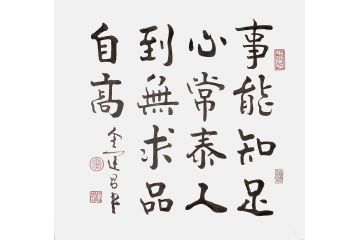 事能知足
心常泰人
到無求品
自高